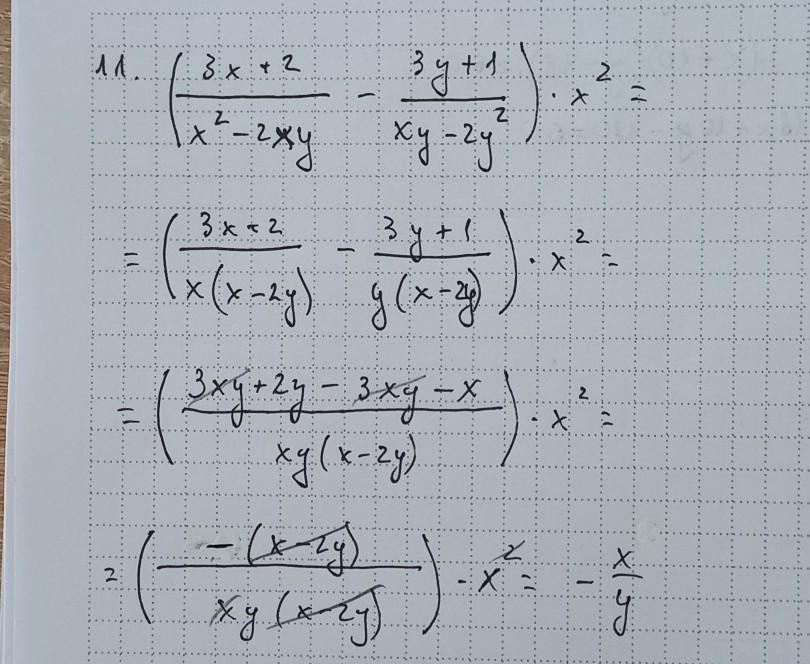 11. ( (3x + 2)/(x² - 2xy) - (3y + 1)/(xy - 2y²) ) · x² =
= ( (3x + 2)/(x(x - 2y)) - (3y + 1)/(y(x - 2y)) ) · x² =
= ( (3xy + 2y - 3xy - x)/(xy(x - 2y)) ) · x² =
= ( (-(x - 2y))/(xy(x - 2y)) ) · x² = - x/y